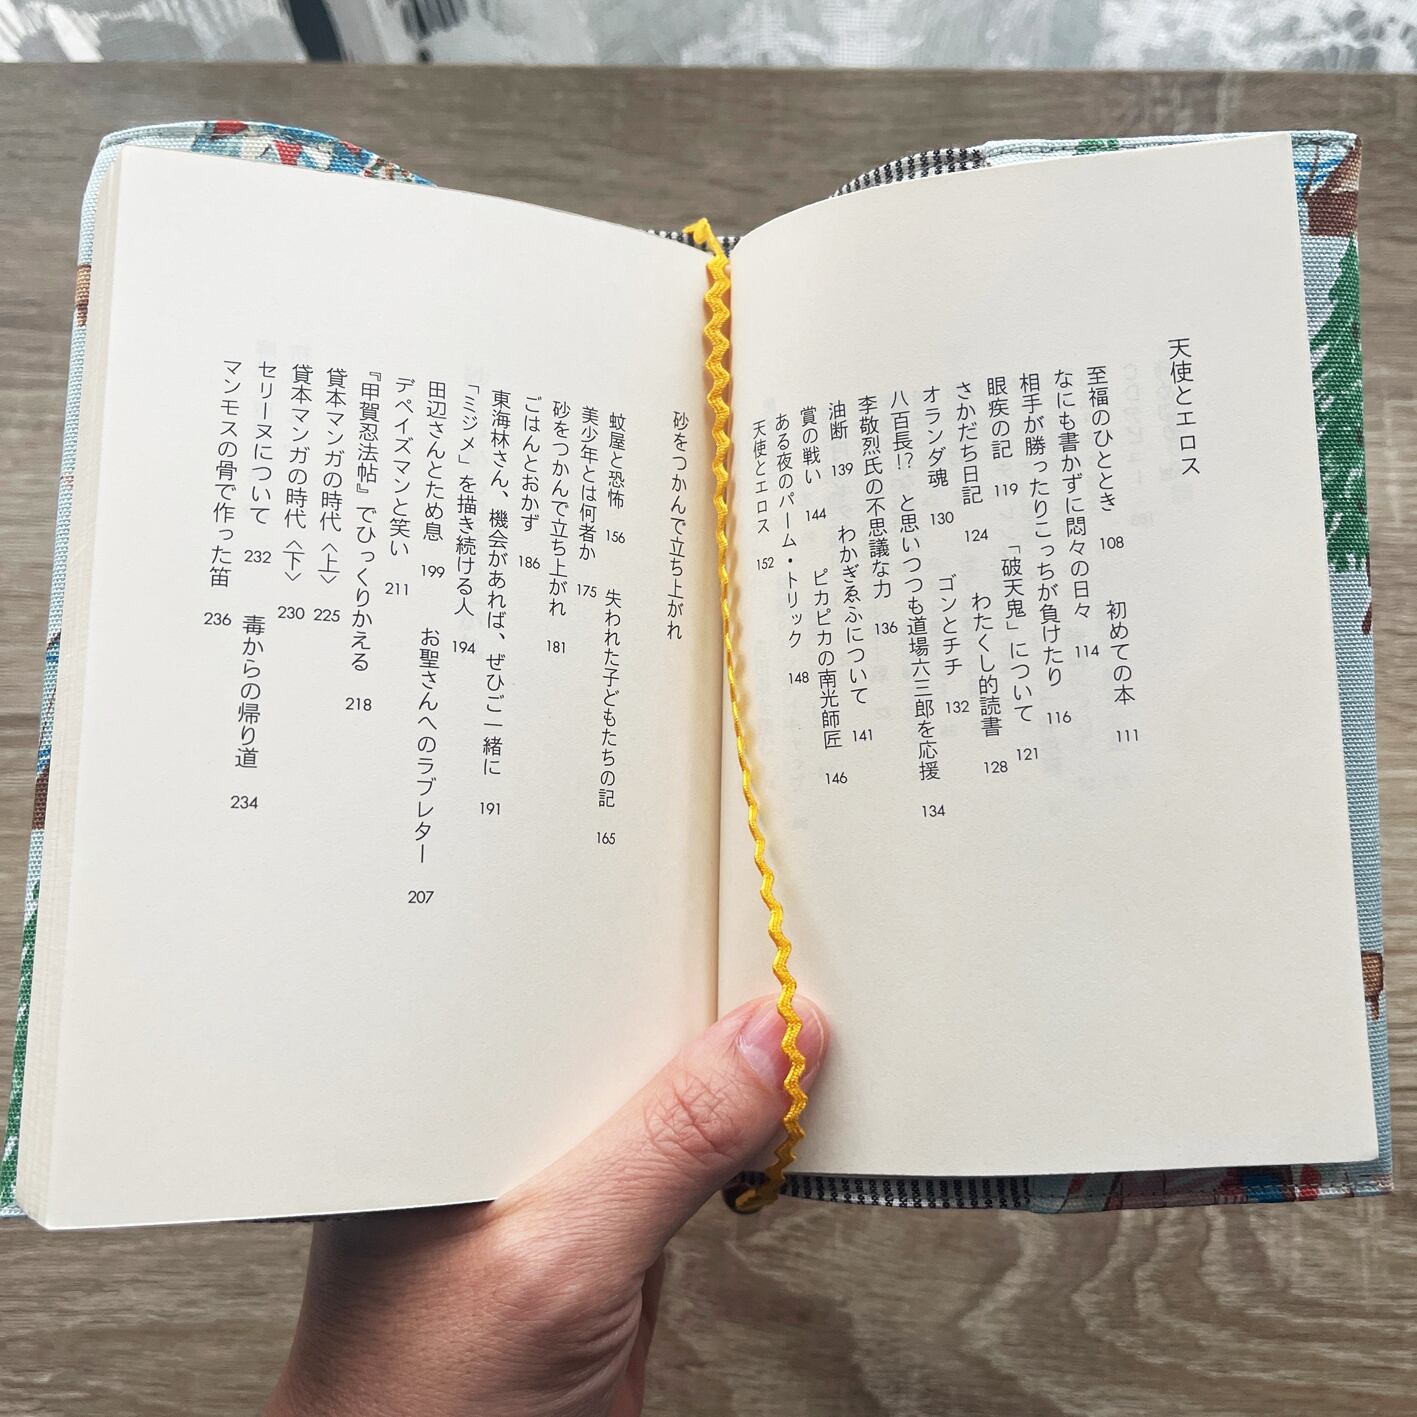 天使とエロス
至福のひととき 108 初めての本 111
なにも書かずに悶々の日々 114
相手が勝ったりこっちが負けたり 116
眼疾の記 119 「破天鬼」について 121
さかだち日記 124 わたくし的読書 128
オランダ魂 130 ゴンとチチ 132
八百長!? と思いつつも道場六三郎を応援 134
李敬烈氏の不思議な力 136
油断 139 わかぎゑふについて 141
賞の戦い 144 ピカピカの南光師匠 146
ある夜のパーム・トリック 148
天使とエロス 152
砂をつかんで立ち上がれ
蚊屋と恐怖 156 失われた子どもたちの記 165
美少年とは何者か 175
砂をつかんで立ち上がれ 181
ごはんとおかず 186
東海林さん、機会があれば、ぜひご一緒に 191
「ミジメ」を描き続ける人 194
田辺さんとため息 199 お聖さんへのラブレター 207
デペイズマンと笑い 211
『甲賀忍法帖』でひっくりかえる 218
貸本マンガの時代〈上〉 225
貸本マンガの時代〈下〉 230
セリーヌについて 232 毒からの帰り道 234
マンモスの骨で作った笛 236